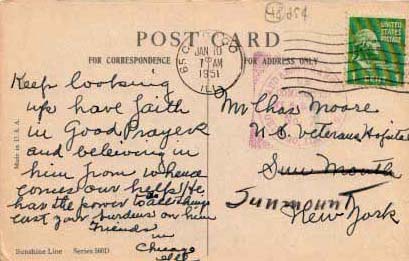 POST CARD
FOR CORRESPONDENCE
FOR ADDRESS ONLY
JAN 10
AM
1951
ILL
Keep looking
up have faith
in Good Prayers
and beleiving in
him from whence
comes our help He
has the power to
cast your burdens on him
Friends
in
Chicago
Ill
Mr Chas Moore
Veterans Hospital
Sun Mouth
Sunmount
New York
Made in U.S.A.
Sunshine Line Series 160D